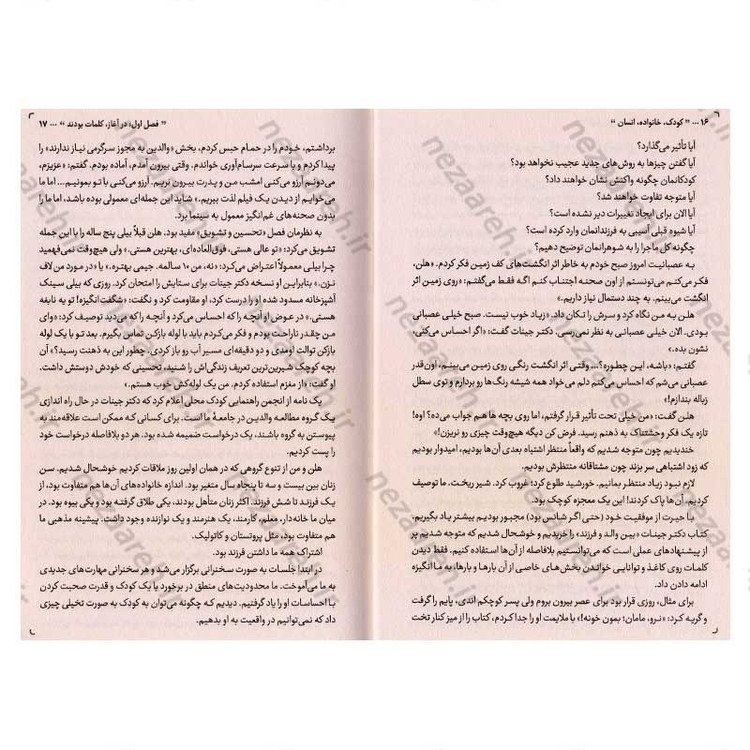 ۱۶ ... " کودک، خانواده، انسان "
آیا تأثیر می‌گذارد؟
آیا گفتن چیزها به روش‌های جدید عجیب نخواهد بود؟
کودکانمان چگونه واکنش نشان خواهند داد؟
آیا متوجه تفاوت خواهند شد؟
آیا الان برای ایجاد تغییرات دیر نشده است؟
آیا شیوه قبلی آسیبی به فرزندانمان وارد کرده است؟
چگونه کل ماجرا را به شوهرانمان توضیح دهیم؟
به عصبانیت امروز صبح خودم به خاطر اثر انگشت‌های کف زمین فکر کردم. «هلن،
فکر می‌کنم می‌تونستم از اون صحنه اجتناب کنم اگه فقط می‌گفتم: «روی زمین اثر
انگشت می‌بینم. به چند دستمال نیاز داریم.»
هلن به من نگاه کرد و سرش را تکان داد. «زیاد خوب نیست. صبح خیلی عصبانی
بودی. الان خیلی عصبانی به نظر نمی‌رسی. دکتر جینات گفت: «اگر احساس می‌کنی،
نشون بده.»
گفتم: «باشه، این چطوره؟... وقتی اثر انگشت رنگی روی زمین می‌بینم، اون‌قدر
عصبانی می‌شم که احساس می‌کنم دلم می‌خواد همه شیشه رنگ‌ها رو بردارم و توی سطل
زباله بندازم!»
هلن گفت: «من خیلی تحت تأثیر قرار گرفتم، اما روی بچه ها هم جواب می‌ده؟ اوه!
تازه یک فکر وحشتناک به ذهنم رسید. فرض کن دیگه هیچ‌وقت چیزی رو نریزن!»
خندیدیم چون متوجه شدیم که واقعاً منتظر اشتباه بعدی آن‌ها بودیم، امیدوار بودیم
که زود اشتباهی سر بزند چون مشتاقانه منتظرش بودیم.
لازم نبود زیاد منتظر بمانیم. خورشید طلوع کرد؛ غروب کرد. شیر ریخت. ما توصیف
کردیم. آن‌ها پاک کردند! این یک معجزه کوچک بود.
با حیرت از موفقیت خود (حتی اگر شانس بود) مجبور بودیم بیشتر یاد بگیریم.
کتاب دکتر جینات «بین والد و فرزند» را خریدیم و خوشحال شدیم که متوجه شدیم پر
از پیشنهادهای عملی است که می‌توانستیم بلافاصله از آن‌ها استفاده کنیم. فقط دیدن
کلمات روی کاغذ و توانایی خواندن بخش‌های خاصی از آن بارها و بارها، به ما انگیزه
ادامه دادن داد.
برای مثال، روزی قرار بود برای عصر بیرون بروم ولی پسر کوچکم اندی، پایم را گرفت
و گریه کرد: «نرو، مامان؛ بمون خونه!» با ملایمت او را جدا کردم، کتاب را از میز کنار تخت
" فصل اول؛ در آغاز، کلمات بودند " ... ۱۷
برداشتم، خودم را در حمام حبس کردم، بخش «والدین به مجوز سرگرمی نیاز ندارند» را
پیدا کردم و با سرعت سرسام‌آوری خواندم. وقتی بیرون آمدم، آماده بودم. گفتم: «عزیزم،
می‌دونم آرزو می‌کنی امشب من و پدرت بیرون نریم. آرزو می‌کنی با تو بمونیم... اما ما
می‌خوایم از دیدن یک فیلم لذت ببریم.» شاید این جمله‌ای معمولی بوده باشد، اما ما را
بدون صحنه‌های غم‌انگیز معمول به سینما برد.
به نظرمان فصل «تحسین و تشویق» مفید بود. هلن قبلاً بیلی پنج ساله را با این جمله
تشویق می‌کرد: «تو عالی هستی، فوق‌العاده‌ای، بهترین هستی.» ولی هیچ‌وقت نمی‌فهمید
چرا بیلی معمولاً اعتراض می‌کرد: «نه، من ۱۰ سالمه. جیمی بهتره.» یا «در مورد من لاف
نزن.» بنابراین او نسخه دکتر جینات برای ستایش را امتحان کرد. روزی که بیلی سینک
آشپزخانه مسدود شده او را درست کرد، او مقاومت کرد و نگفت: «شگفت‌انگیزه! تو یه نابغه
هستی.» در عوض او آنچه را که احساس می‌کرد و آنچه را که می‌دید توصیف کرد: «وای
من چقدر ناراحت بودم و فکر می‌کردم باید با لوله بازکن تماس بگیرم. بعد تو با یک لوله
بازکن توالت اومدی و دو دقیقه‌ای مسیر آب رو باز کردی. چطور این به ذهنت رسید؟» آن
بچه کوچک شیرین‌ترین تعریف زندگی‌اش را شنید، تحسینی که خودش دوستش داشت.
او گفت: «از مغزم استفاده کردم. من یک لوله‌کش خوب هستم.»
یک نامه از انجمن راهنمایی کودک محلی اعلام کرد که دکتر جینات در حال راه اندازی
یک گروه مطالعه والدین در جامعهٔ ما است. برای کسانی که ممکن است علاقه‌مند به
پیوستن به گروه باشند، یک درخواست ضمیمه شده بود. هر دو بلافاصله درخواست خود
را تکمیل کردیم.
هلن و من از تنوع گروهی که در همان اولین روز ملاقات کردیم خوشحال شدیم. سن
زنان بین بیست و سه تا پنجاه سال متغیر بود. اندازه خانواده‌های آن‌ها هم متفاوت بود، از
یک فرزند تا شش فرزند. اکثر زنان متأهل بودند، یکی طلاق گرفته بود و یکی بیوه بود. در
میان ما خانه‌دار، معلم، کارمند، یک هنرمند و یک نوازنده وجود داشت. پیشینه مذهبی ما
هم متفاوت بود، مثل پروتستان و کاتولیک.
اشتراک همه ما داشتن فرزند بود.
در ابتدا جلسات به صورت سخنرانی برگزار می‌شد و هر سخنرانی مهارت‌های جدیدی
به ما می‌آموخت. ما محدودیت‌های منطق در برخورد با یک کودک و قدرت صحبت کردن
با احساسات او را یاد گرفتیم. دیدیم که چگونه می‌توان به کودک به صورت تخیلی چیزی
داد که نمی‌توانیم در واقعیت به او بدهیم.
nezaareh.ir